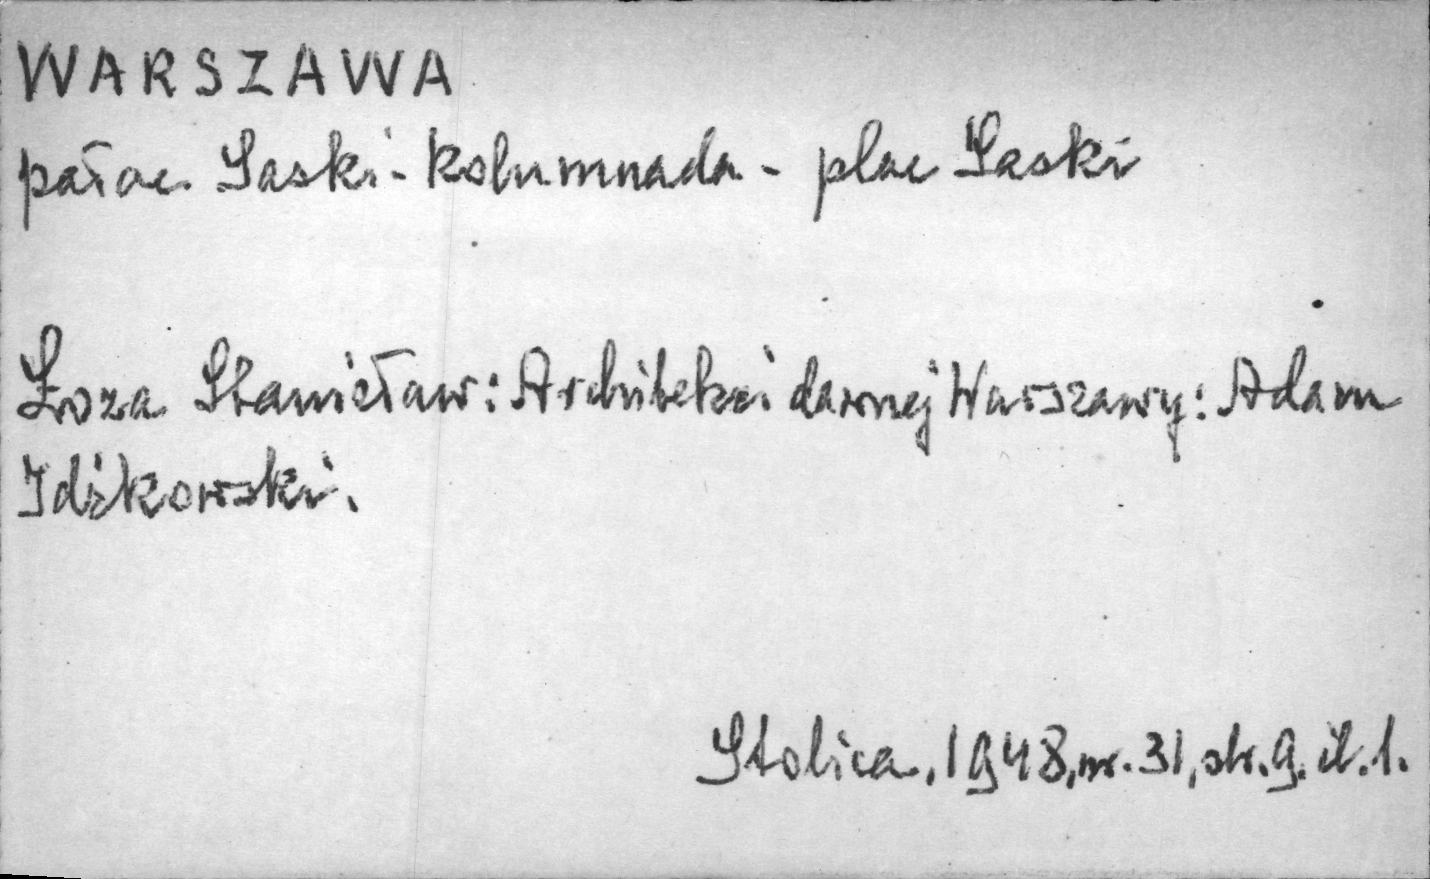 WARSZAWA
pałac Saski - kolumnada - plac Saski
Łoza Stanisław: Architekci dawnej Warszawy: Adam
Idźkowski.
Stolica, 1948, nr. 31, str. 9. il. 1.